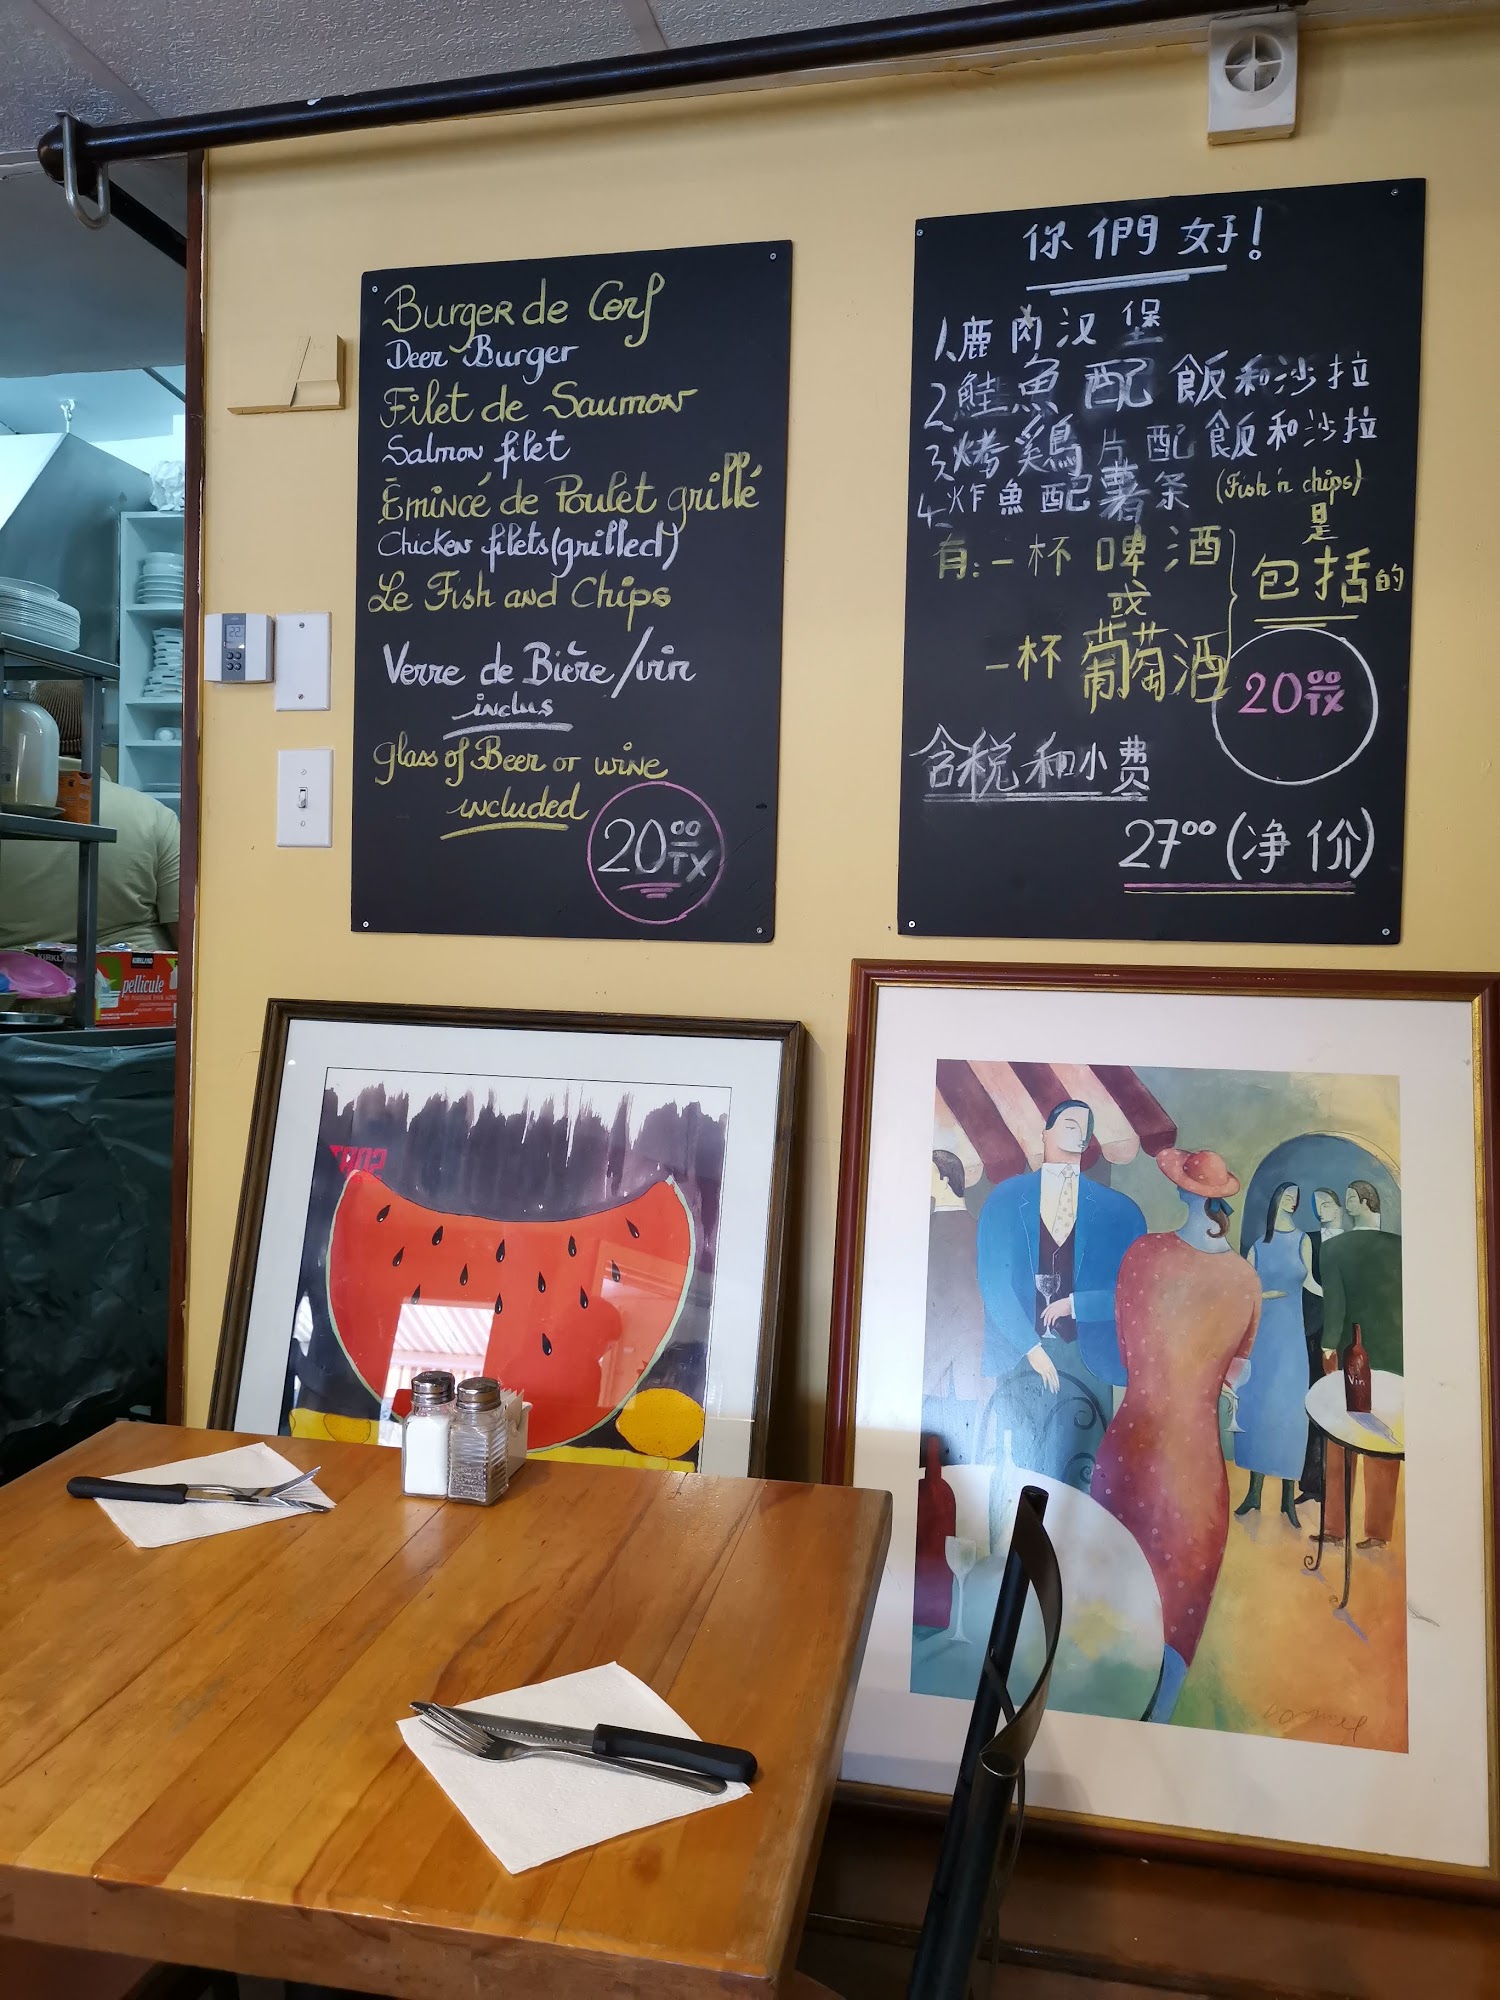 Burger de Cerf
Deer Burger
Filet de Saumon
Salmon filet
Émincé de Poulet grillé
Chicken filets (grilled)
Le Fish and Chips
Verre de Bière/vin
inclus
Glass of Beer or wine
included
20.00
TX
你們好!
1.鹿肉汉堡
2.鮭魚配飯和沙拉
3.烤鷄片配飯和沙拉
4.炸魚配薯条 (Fish'n chips)
有:一杯啤酒
或
一杯葡萄酒
是
包括的
20.00
TX
含税和小费
27.00 (净价)
KIRKLAND
KIRKLAND
pellicule
22
Vin